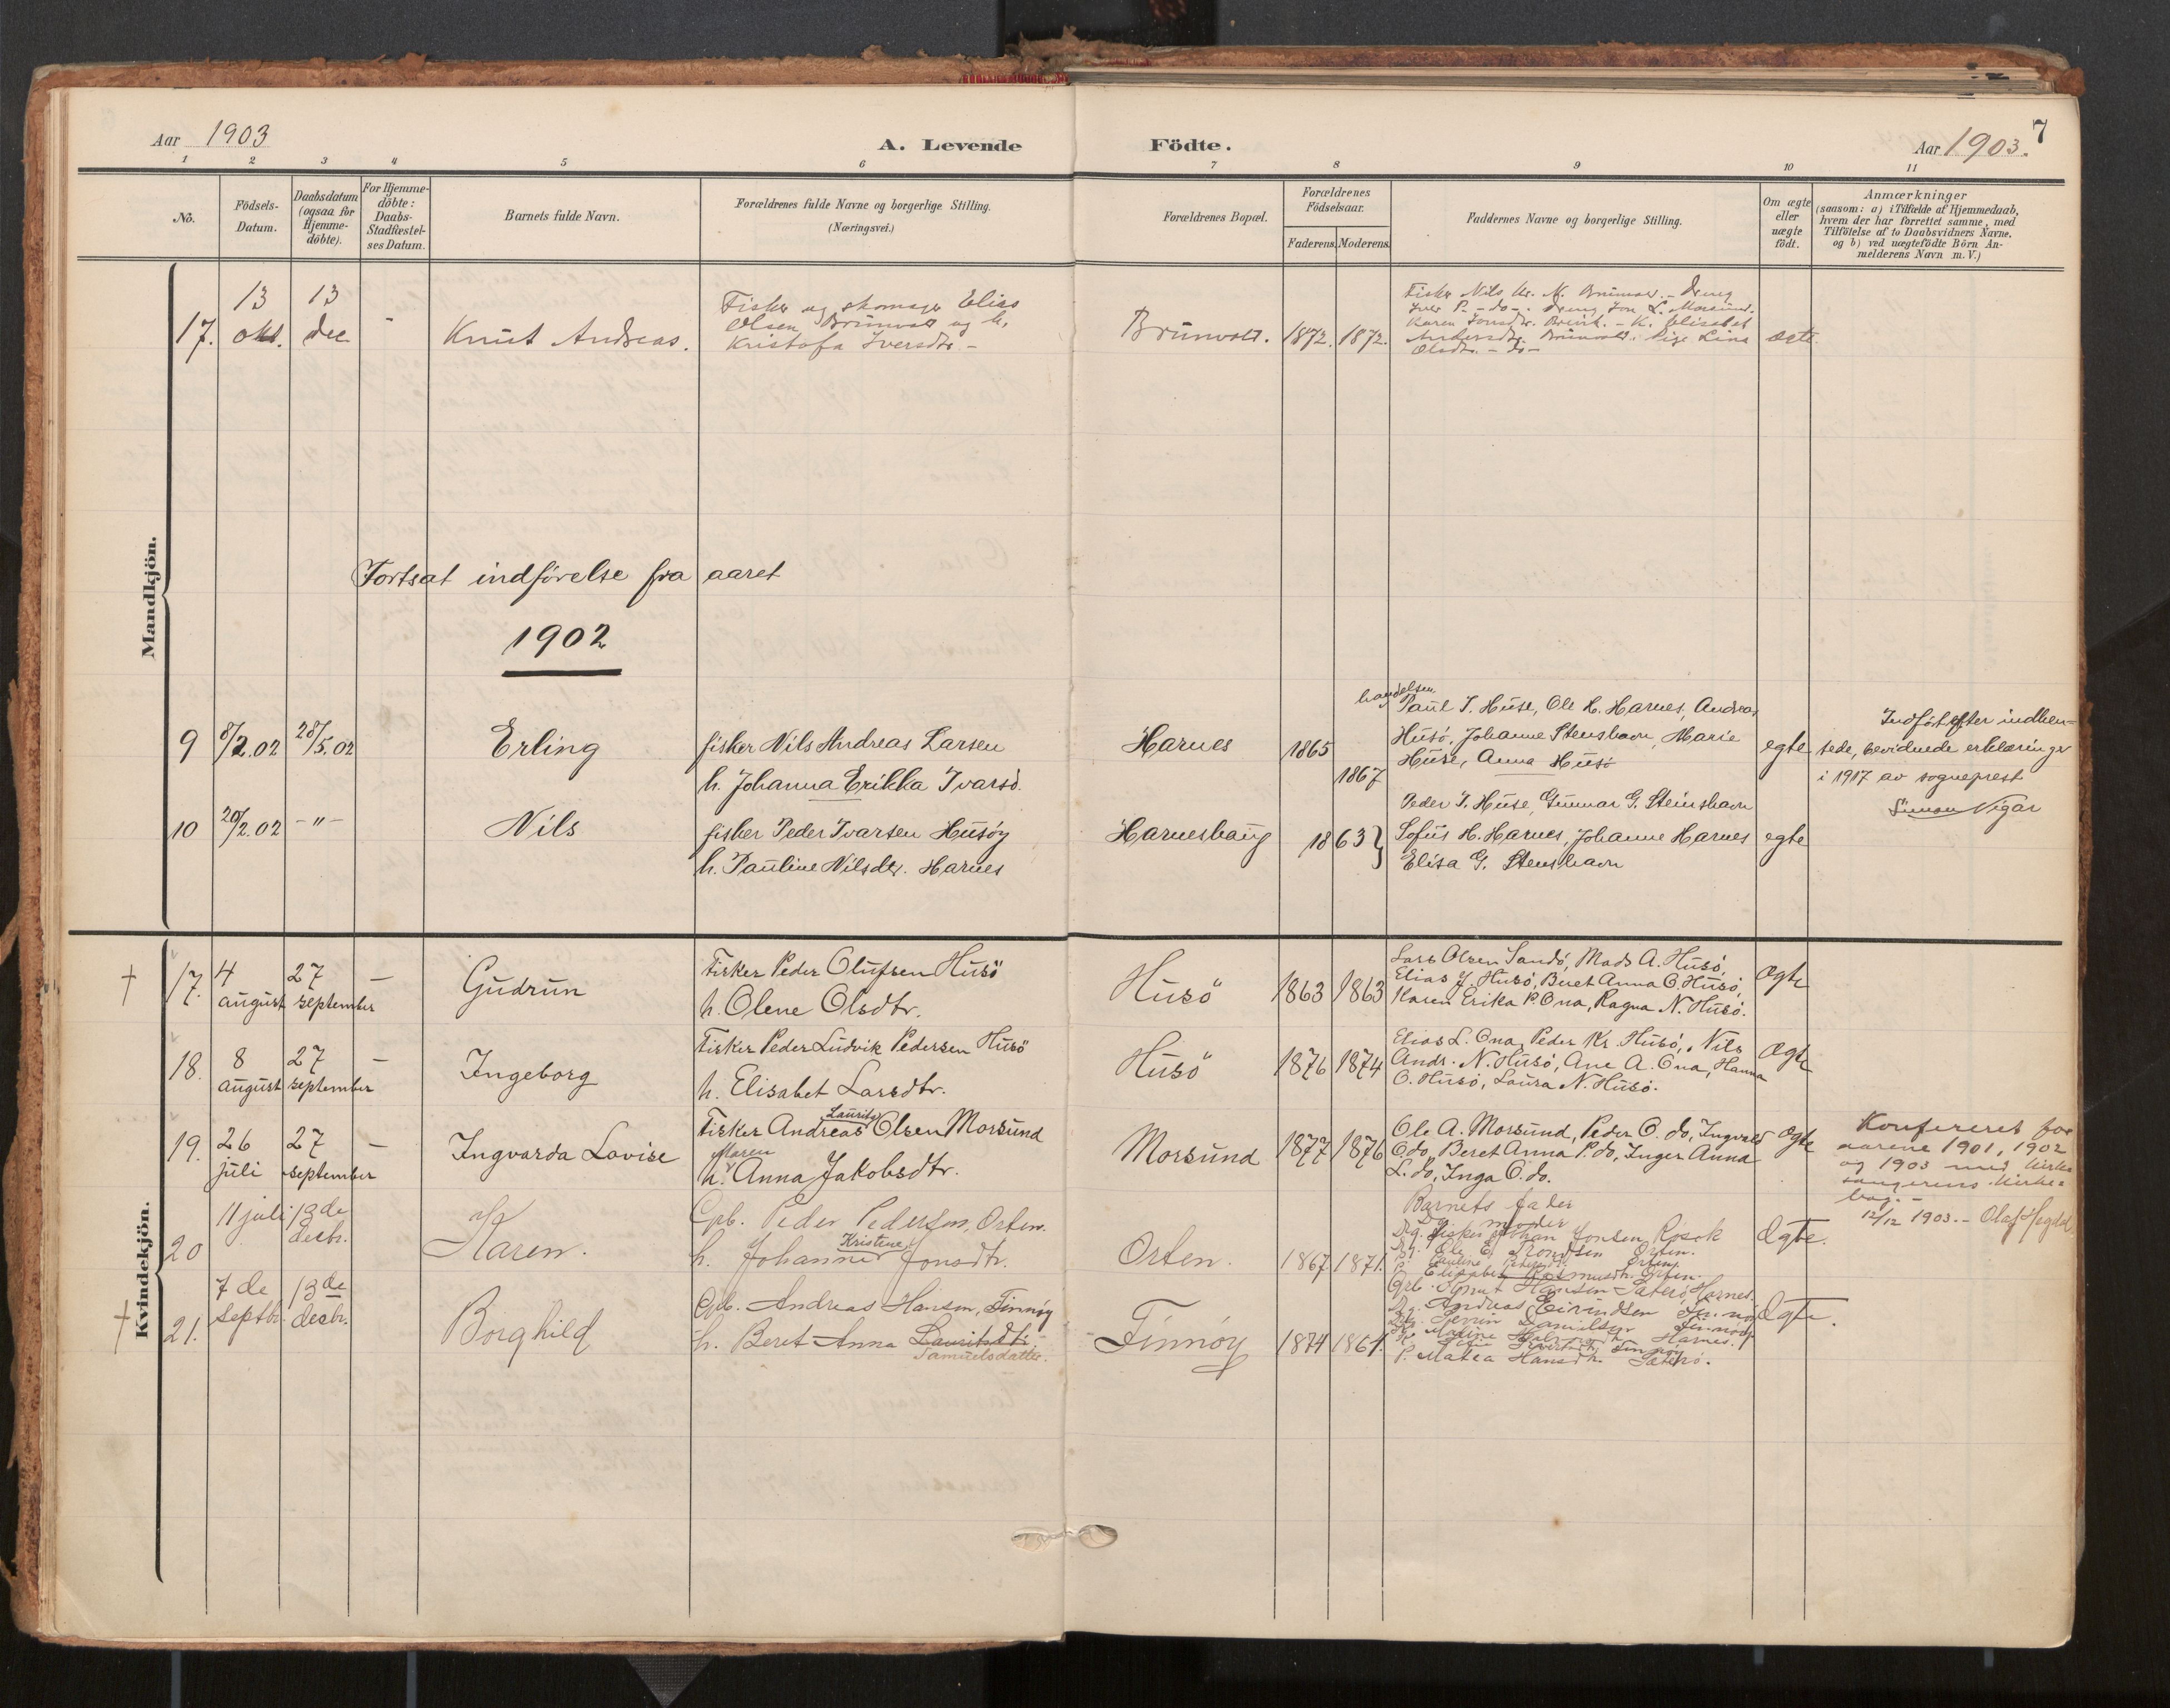 Aar 1903
A. Levende
Födte.
Aar 1903.
7
1 2 3 4 5 6 7 8 9 10 11
No.
Födsels-
Datum.
Daabsdatum
(ogsaa for
Hjemme-
döbte).
For Hjemme-
döbte:
Daabs-
Stadfæstel-
ses Datum.
Barnets fulde Navn.
Forældrenes fulde Navne og borgerlige Stilling.
(Næringsvei.)
Forældrenes Bopæl.
Forældrenes
Födselsaar.
Faderens. Moderens.
Faddernes Navne og borgerlige Stilling.
Om ægte
eller
uægte
födt.
Anmærkninger
(saasom: a) i Tilfælde af Hjemmedaab,
hvem der har forrettet samme, med
Tilföielse af to Daabsvidners Navne,
og b) ved uægtefödte Börn An-
melderens Navn m.V.)
Mandkjön.
17.
13
okt.
13
dec
Knut Andreas.
Fisker og skomager Elias
Olsen Brunvold og h.
Kristofa Iversdtr. -
Brunvold.
1872. 1872.
Fisker Nils Kr. N. Brunvold. - Dreng
Iver P. - do -. Dreng Jon L. Morsund.
Karen Jonsdtr. - K. Elisabet
Andersdtr. Brunvold. Pige Lina
Olsdtr. - do -
ægte.
Fortsat indførelse fra aaret
1902
9 8/2.02 28/5.02 Erling
fisker Nils Andreas Larsen
h. Johanna Erikka Ivarsd.
Harnes
1865
1867
handelsm.
Paul I. Huse, Ole K. Harnes, Andreas
Husö, Johanne Stenshavn, Marie
Huse, Anna Husö
egte
Indført efter indhen-
tede, bevidnede erklæringer
i 1917 av sogneprest
Simon Vigar
10 20/2.02 - " - Nils
fisker Peder Ivarsen Husøy
h. Pauline Nilsdtr. Harnes
Harneshaug
1863
Peder I. Huse, Gunnar G. Steinshavn
Sofus H. Harnes, Johanne Harnes
Elisa G. Stenshavn
egte
Kvindekjön.
† 17. 4 august 27 september - Gudrun
Fisker Peder Olufsen Husö
h. Olene Olsdtr.
Husö
1863 1863
Lars Olsen Sandö, Mads A. Husö,
Elias J. Husö, Beret Anna O. Husö,
Karen Erika P. Ona, Ragna N. Husö.
Ægte
18. 8 august 27 september - Ingeborg
Fisker Peder Ludvik Pedersen Husö
h. Elisabet Larsdtr.
Husö
1876 1874
Elias L. Ona, Peder Kr. Husö, Nils
Andr. N. Husö, Ane A. Ona, Hanna
O. Husö, Laura N. Husö.
Ægte
19. 26 juli 27 september - Ingvarda Lovise
Lauritz
Fisker Andreas Olsen Morsund
Maren
h. Anna Jakobsdtr.
Morsund
1877 1876
Ole A. Morsund, Peder O. do, Ingvald
O. do, Beret Anna P. do, Inger Anna
L. do, Inga O. do.
Ægte
Konfereret for
aarene 1901, 1902
og 1903 med kirke-
sangerens kirke-
bog. -
12/12 1903. - Olaf
20 11 juli 13de decbr. Karen.
Gpb. Peder Pedersen, Orten.
Kristine
h. Johanne Jonsdtr.
Orten.
1867 1871.
Barnets fader
Dg. moder
Dg. Fisker Johan Jonsen Rösok
Dg. Ole E. Trondsen Orten.
P. Pauline Orten
P. Elisabet Rasmusdtr. Orten.
Ægte.
† 21. 7 de septbr. 13de decbr. Borghild
Gpb. Andreas Hansen, Finnöy
h. Beret Anna Lauritsdtr.
Samuelsdatter.
Finnöy
1874 1861.
Gpb. Knut Hansen Sæterö, Harnes.
Dg. Andreas Eivindsen
Dg. Severin Danielsen Finnöy
Harnes.
P. Matea Hansdtr. Sæterö.
Ægte.